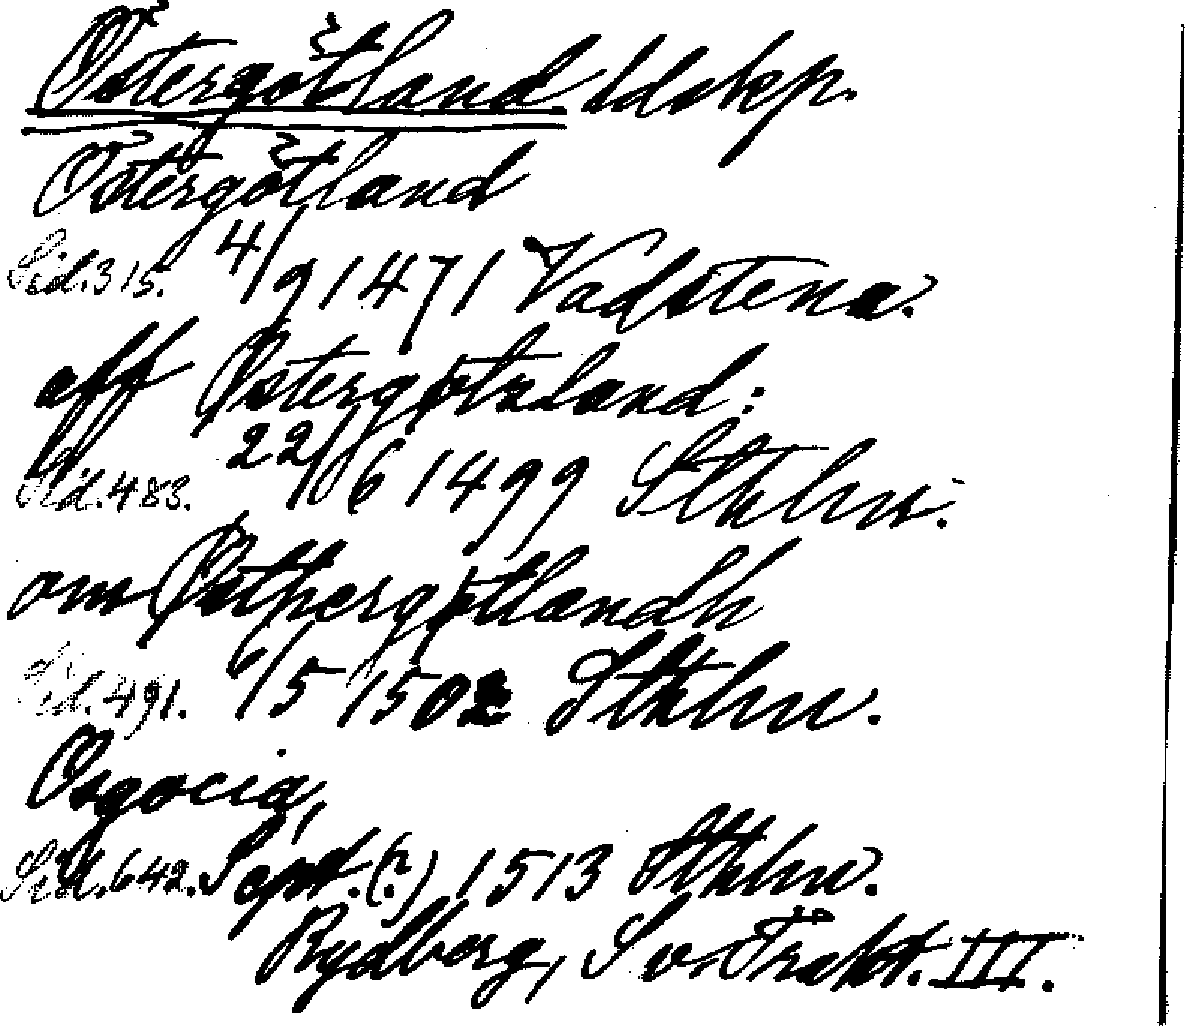 Östergötland ldskp.
Östergötland
Sid. 315. 4/9 1471 Vadstena.
aff Østergøtzland:
Sid. 483. 22/6 1499 Sthlm.
om Østhergøtlandh
Sid. 491. 6/5 1502 Sthlm.
Osgocia,
Sid. 642. Sept. (?) 1513 Sthlm.
Rydberg, Sv. Trakt. III.